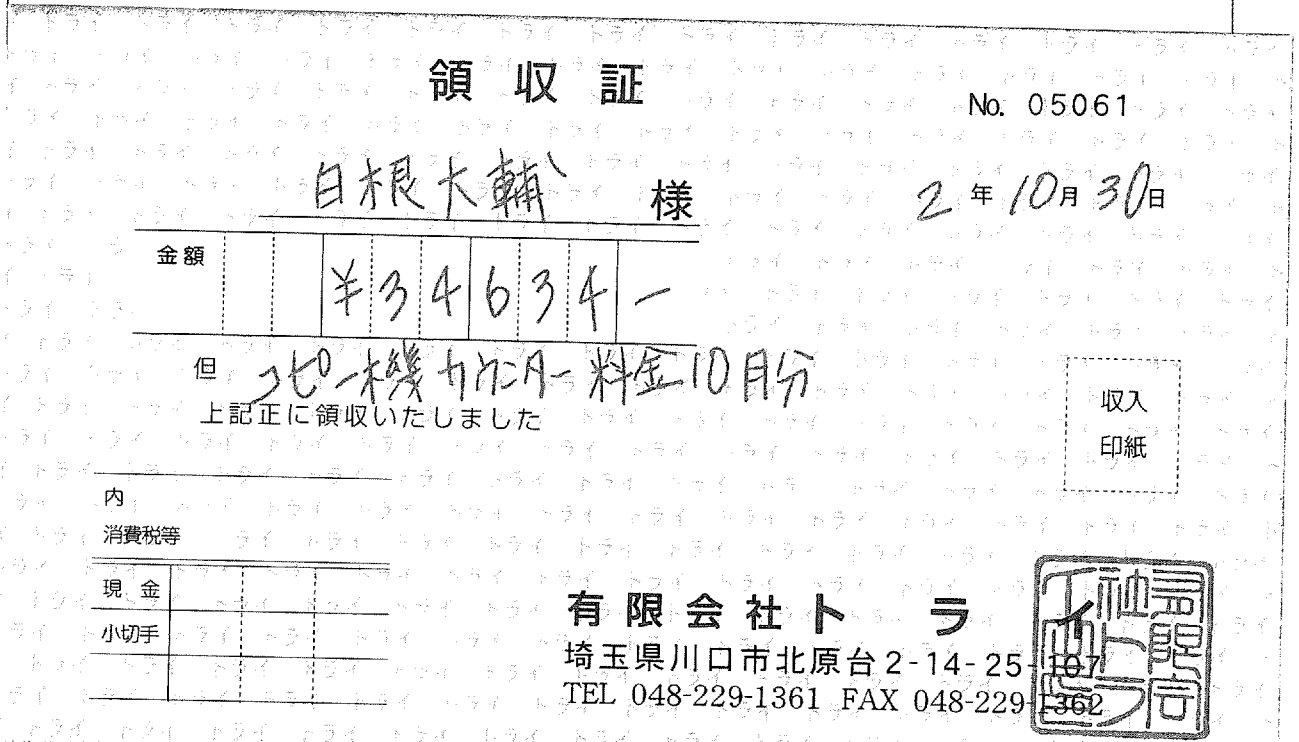 領収証
No. 05061
白根大輔 様
2年10月30日
金額 ¥34634-
但 コピー機カウンター料金10月分
上記正に領収いたしました
収入
印紙
内
消費税等
現金
小切手
有限会社トライ
埼玉県川口市北原台2-14-25-107
TEL 048-229-1361 FAX 048-229-1362